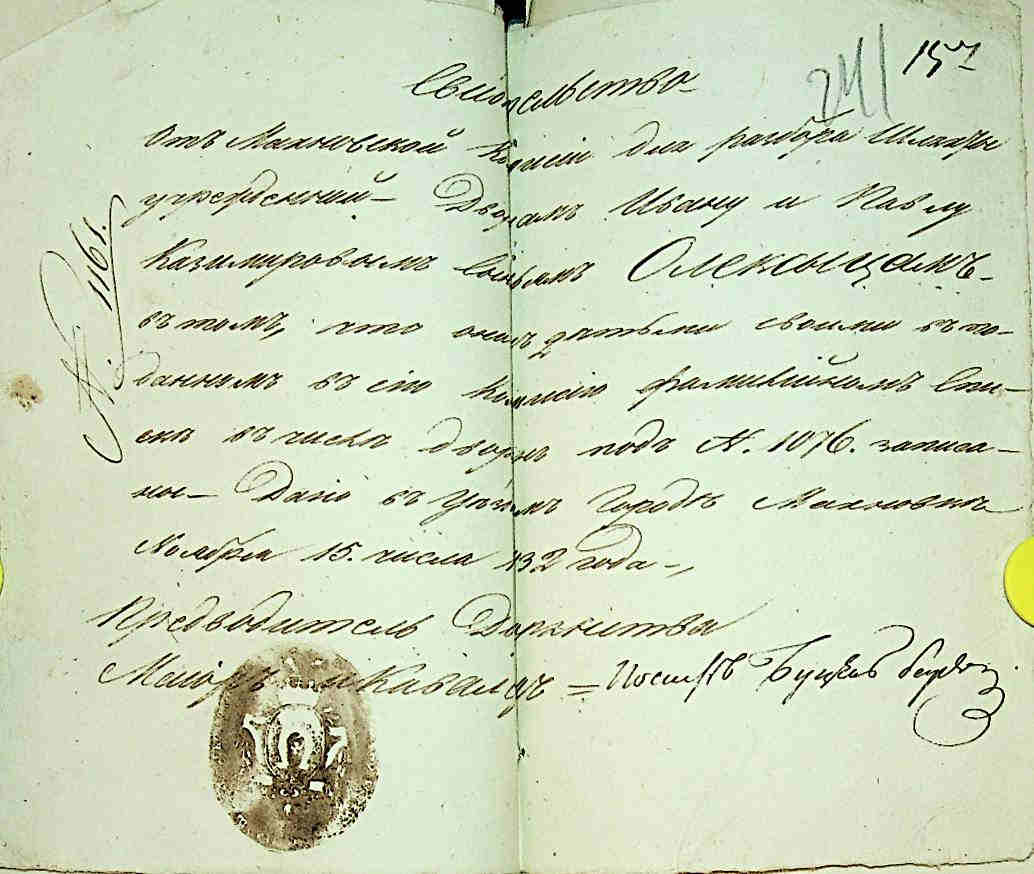 241 157
Свидетельство
Отъ Махновской Комисіи для разбора Шляхты
учрежденной – Дворянамъ Ивану и Павлу
Казимировымъ Сыновьямъ Олексыцамъ –
въ томъ, что они съ дѣтьми своими въ по-
данномъ въ сію Комисію фамилійномъ Спи-
скѣ въ числѣ дворянъ подъ N. 1076. записа-
ны – Дано въ Городкѣ Махновкѣ
Ноября 15. числа 1832 года –
N. 1161.
Предводитель Дворянства
Маіоръ и Кавалеръ = Іосифъ